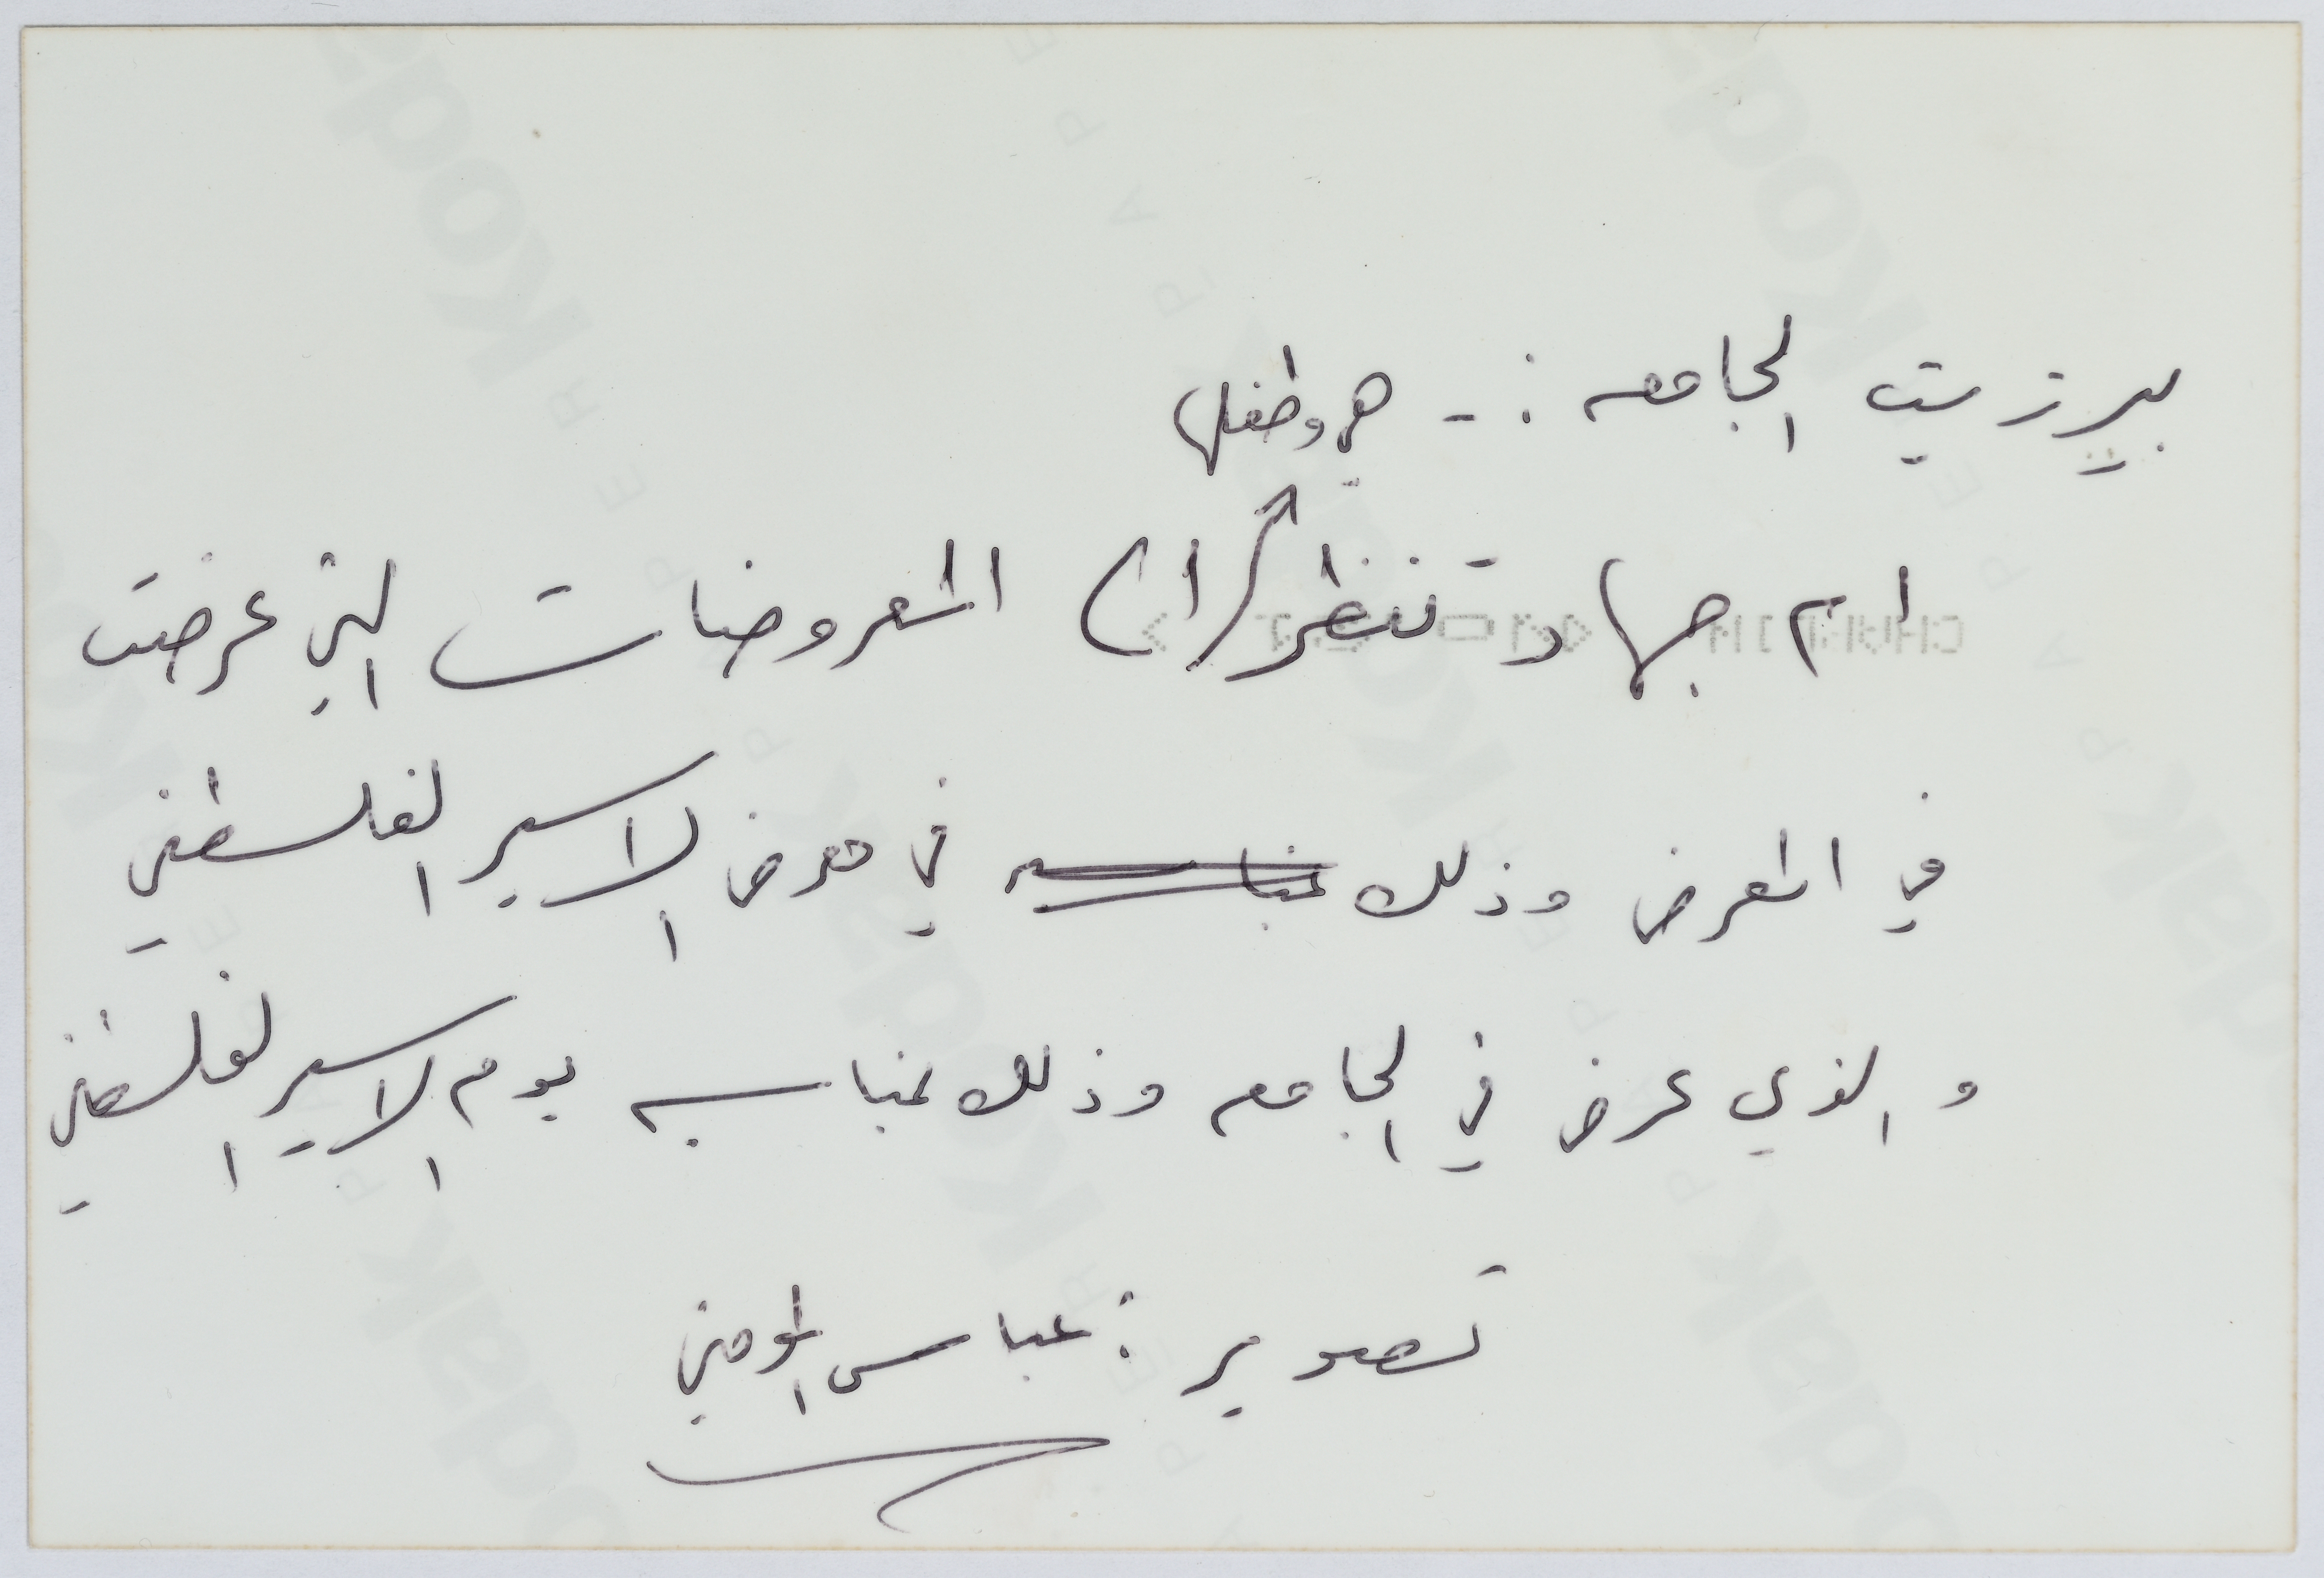 بيرزيت الجامعه :- هي وطفلها
ام جهاد تنظر الى المعروضات التي عرضت
في المعرض وذلك بمناسبه في معرض الاسير الفلسطيني
والذي عرض في الجامعه وذلك بمناسبه يوم الاسير الفلسطيني
تصوير : عباس المومني